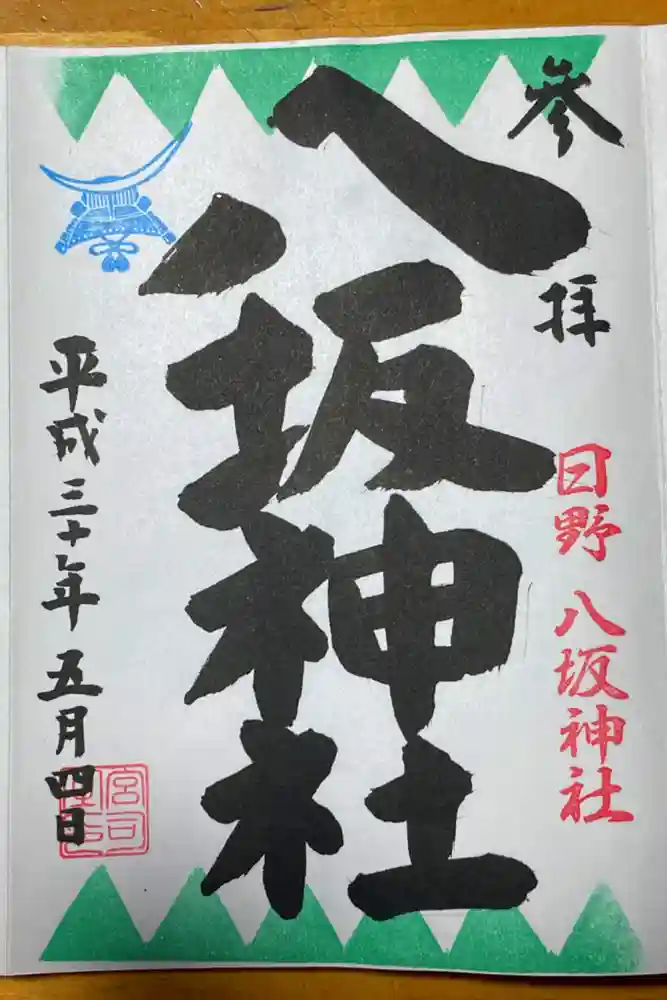 参拝
日野 八坂神社
八坂神社
平成三十年五月四日
宮司